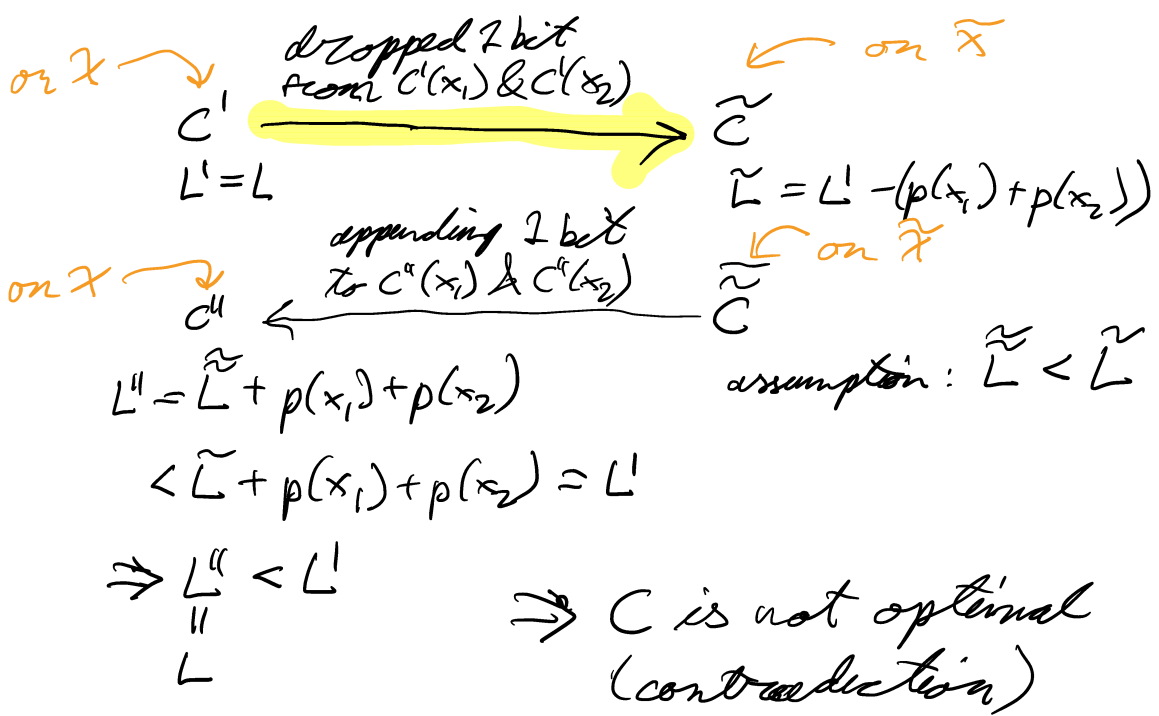 on X
dropped 1 bit
from C'(x₁) & C'(x₂)
on x̃
C'
C̃
L' = L
L̃ = L' - (p(x₁) + p(x₂))
appending 1 bit
to C"(x₁) & C"(x₂)
on X̃
on X
C"
C̃̃
L" = L̃̃ + p(x₁) + p(x₂)
assumption : L̃̃ < L̃
< L̃ + p(x₁) + p(x₂) = L'
⇒ L" < L'
||
L
⇒ C is not optimal
(contradiction)